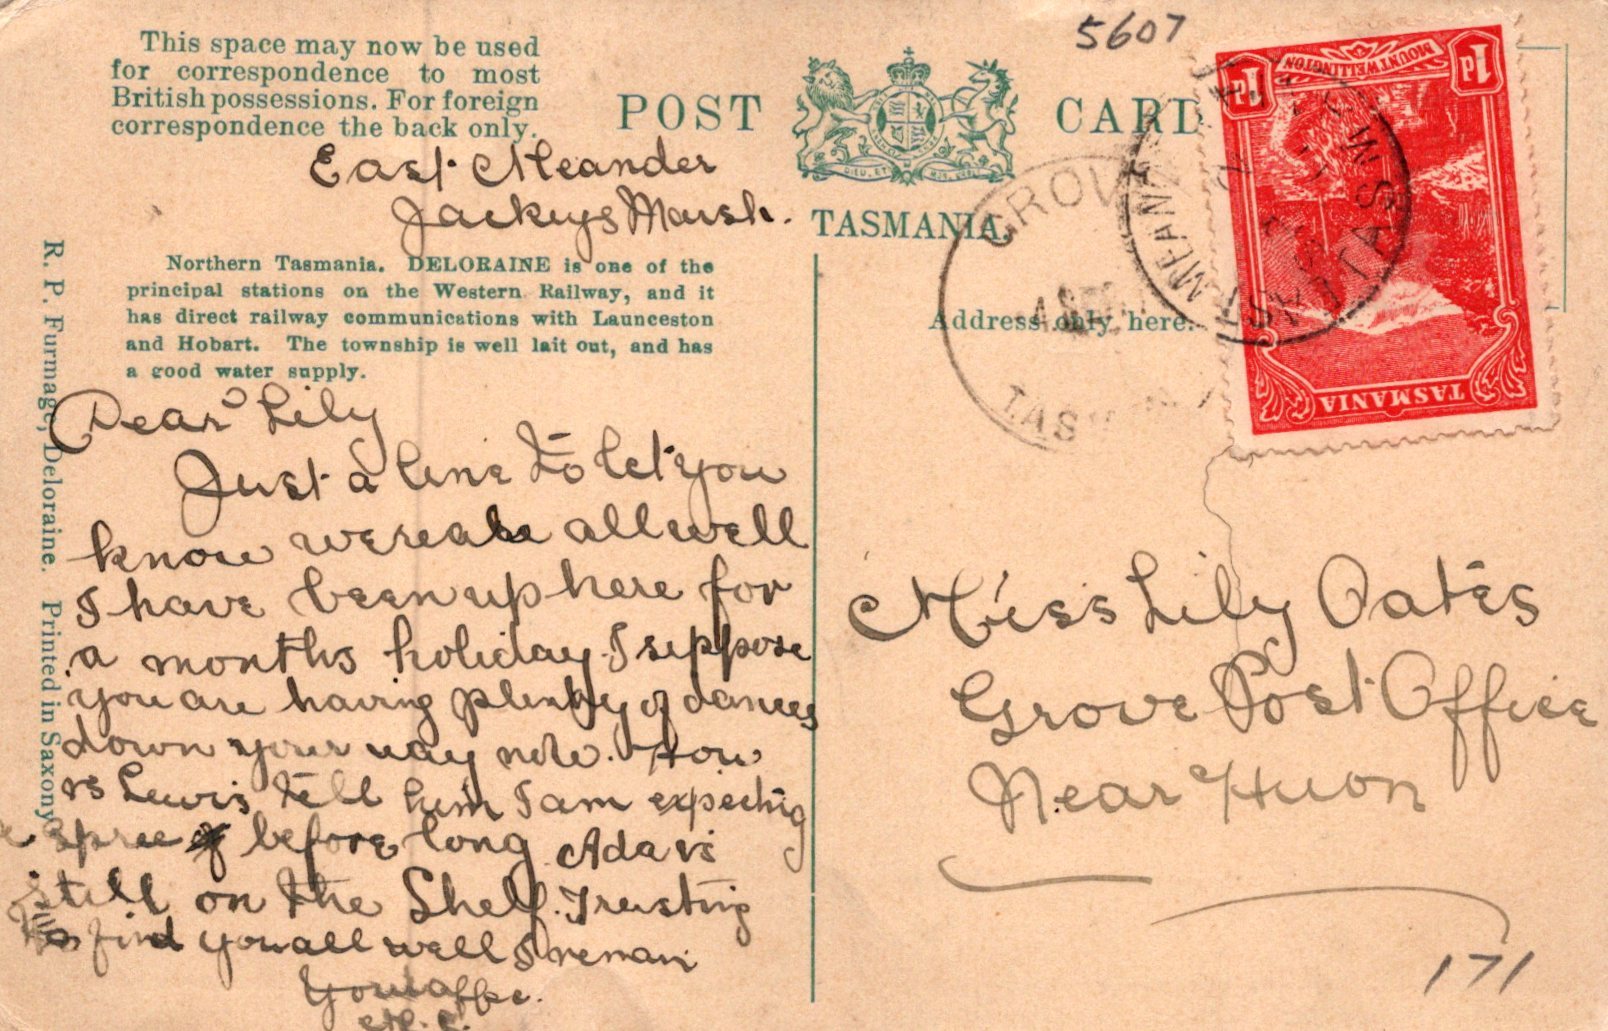 This space may now be used
for correspondence to most
British possessions. For foreign
correspondence the back only.
5607
POST CARD
DIEU ET MON
TASMANIA.
Address only here.
1d MOUNT WELLINGTON 1d
TASMANIA
GROVE
4 SE
TAS
MEAN
TASMA
East Meander
Jackeys Marsh.
Northern Tasmania. DELORAINE is one of the
principal stations on the Western Railway, and it
has direct railway communications with Launceston
and Hobart. The township is well lait out, and has
a good water supply.
R. P. Furmage, Deloraine. Printed in Saxony.
Dear Lily
Just a line to let you
know we are all well
I have been up here for
a months holiday. I suppose
you are having plenty of dances
down your way now. How
is Lewis tell him I am expecting
a spree before long. Ada is
still on the Shelf. Trusting
find you all well I remain
Your affec.
Miss Lily Oates
Grove Post Office
Near Huon
171